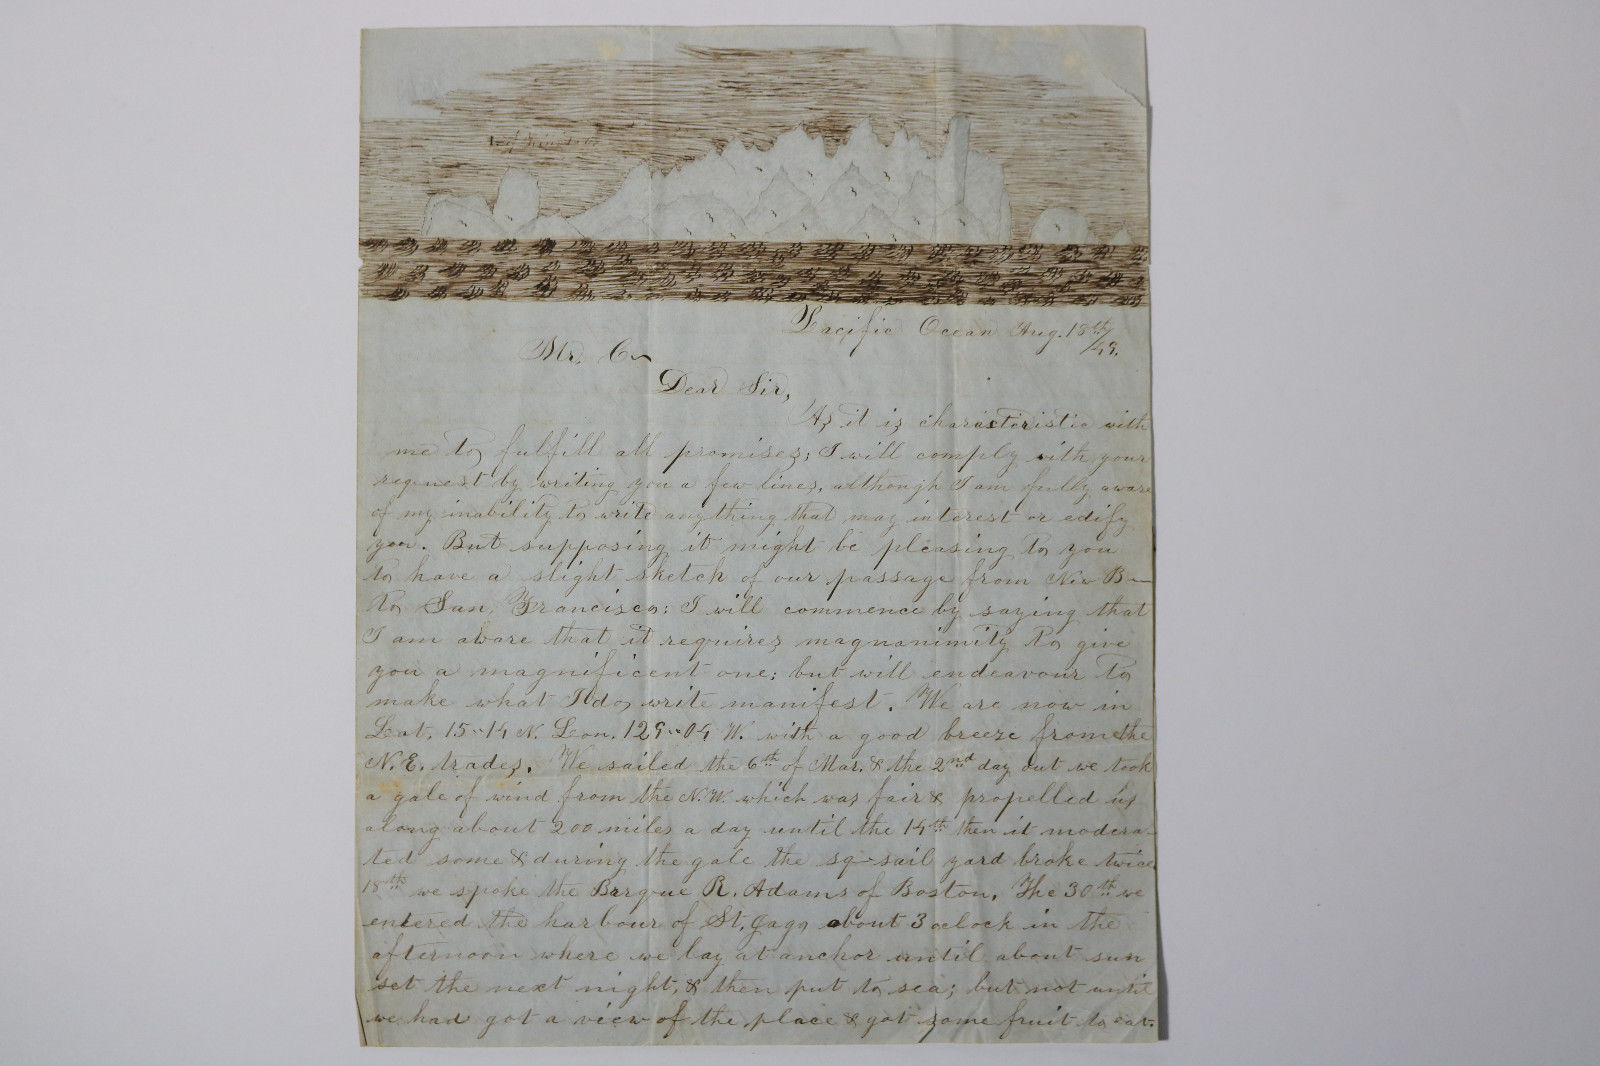 Pacific Ocean Aug. 18th/49.
Mr. C
Dear Sir,
As it is characteristic with
me to fulfill all promises; I will comply with your
request by writing you a few lines, although I am fully aware
of my inability to write anything that may interest or edify
you. But supposing it might be pleasing to you
to have a slight sketch of our passage from New B—
to San Francisco: I will commence by saying that
I am aware that it requires magnanimity to give
you a magnificent one; but will endeavour to
make what I do write manifest. We are now in
Lat. 15..14 N. Lon. 129..04 W. with a good breeze from the
N.E. trades. We sailed the 6th of Mar. & the 2nd day out we took
a gale of wind from the N.W. which was fair & propelled us
along about 200 miles a day until the 14th then it modera-
ted some & during the gale the sq-sail yard broke twice
18th we spoke the Barque R. Adams of Boston. The 30th we
entered the harbour of St. Jago about 3 oclock in the
afternoon where we lay at anchor until about sun
set the next night, & then put to sea; but not until
we had got a view of the place & got some fruit to eat.